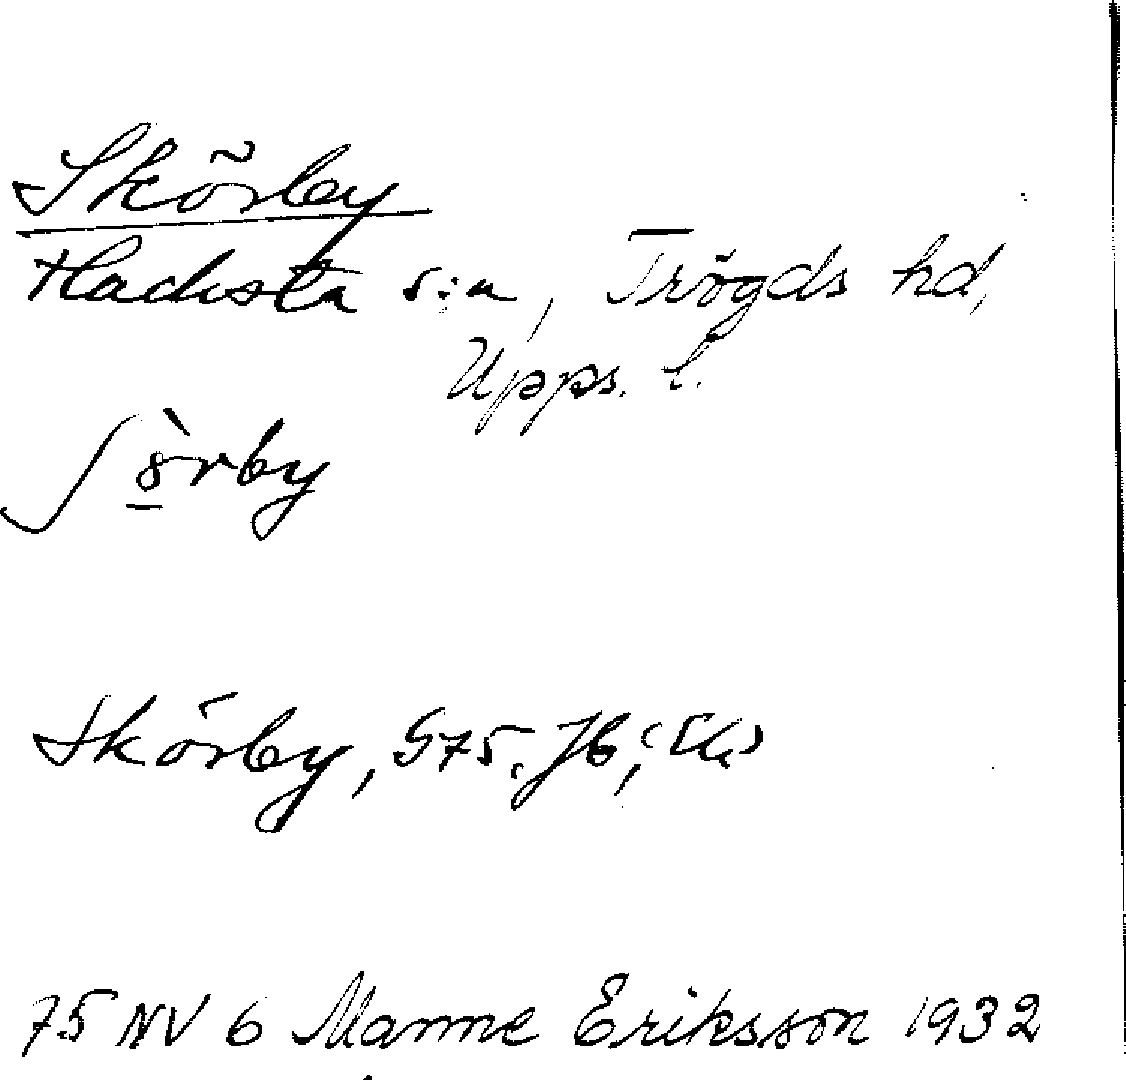 Skörby
Hacksta s:n, Trögds hd,
Upps. l.
ʃö̀rby
Skörby, G75. Jb;
75 NV 6 Manne Eriksson 1932